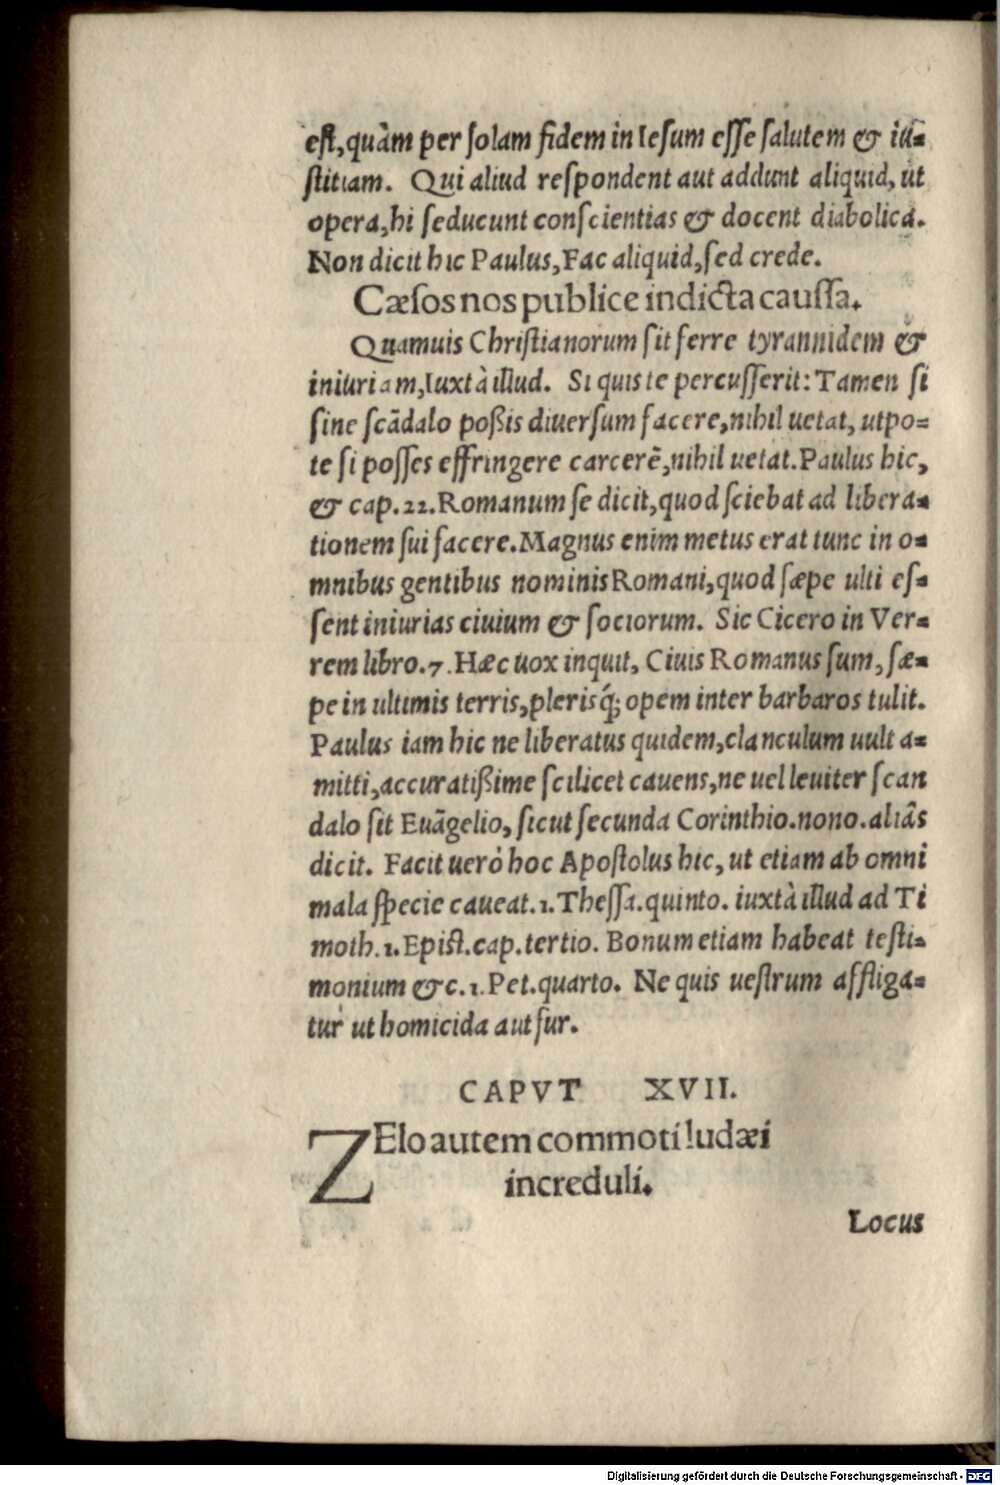 est, quàm per solam fidem in Iesum esse salutem & iu-
stitiam. Qui aliud respondent aut addunt aliquid, ut
opera, hi seducunt conscientias & docent diabolica.
Non dicit hic Paulus, Fac aliquid, sed crede.
Cæsos nos publice indicta caussa.
Quamuis Christianorum sit ferre tyrannidem &
iniuriam, Iuxtà illud. Si quis te percusserit: Tamen si
sine scādalo poßis diuersum facere, nihil uetat, utpo-
te si posses effringere carcerē, nihil uetat. Paulus hic,
& cap. 22. Romanum se dicit, quod sciebat ad libera-
tionem sui facere. Magnus enim metus erat tunc in o-
mnibus gentibus nominis Romani, quod sæpe ulti es-
sent iniurias ciuium & sociorum. Sic Cicero in Ver-
rem libro. 7. Hæc uox inquit, Ciuis Romanus sum, sæ-
pe in ultimis terris, plerisq́; opem inter barbaros tulit.
Paulus iam hic ne liberatus quidem, clanculum uult a-
mitti, accuratißime scilicet cauens, ne uel leuiter scan
dalo sit Euāgelio, sicut secunda Corinthio. nono. aliâs
dicit. Facit uerò hoc Apostolus hic, ut etiam ab omni
mala specie caueat. 1. Thessa. quinto. iuxtà illud ad Ti
moth. 1. Epist. cap. tertio. Bonum etiam habeat testi-
monium &c. 1. Pet. quarto. Ne quis uestrum affliga-
tur ut homicida aut fur.
CAPVT XVII.
ZElo autem commoti Iudæi
increduli.
Locus
Digitalisierung gefördert durch die Deutsche Forschungsgemeinschaft - DFG